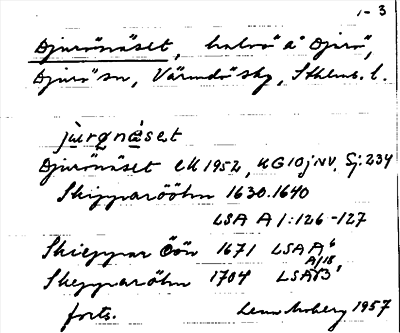 1-3
Djurönäset, halvö å Djurö,
Djurö sn, Värmdö skg, Sthlms. l.
jùrǫnä̀set
Djurönäset EK 1952, KG 10 j NV, Sj:234
Skipparööhn 1630. 1640
LSA A 1:126-127
Skieppar Öön 1671 LSA A6
A/18
Skepparöhn 1704 LSA B3'
forts. Lena Moberg 1957